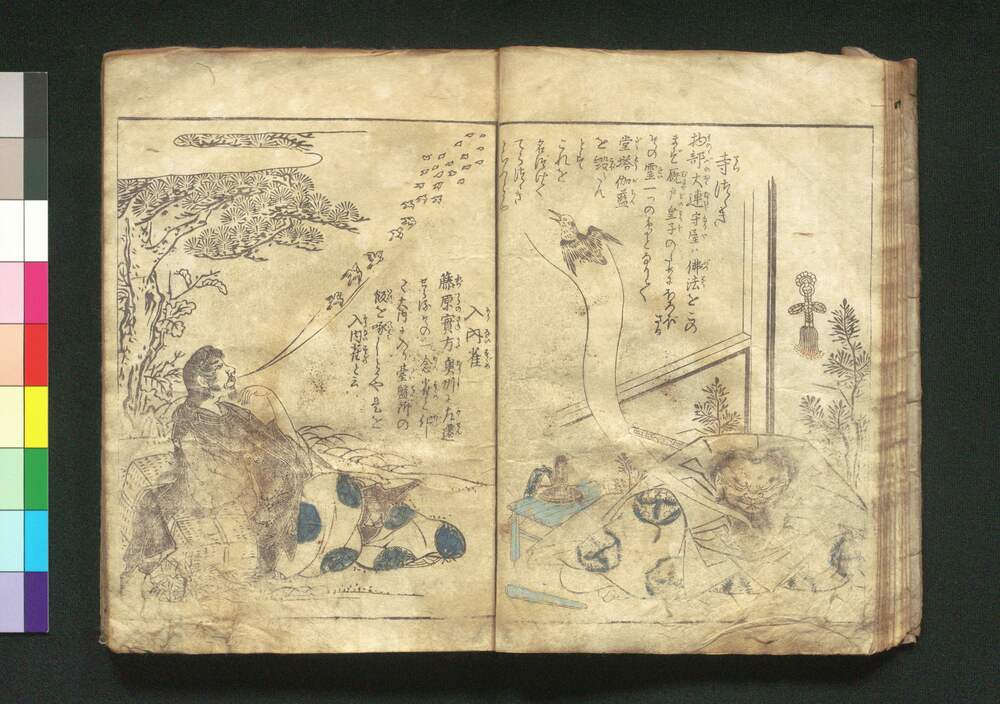 寺つつき
物部大連守屋ハ佛法をこの
まず厩戸皇子のためにほろぼ
さる
その霊一つの鳥となりて
堂塔伽藍
を毀んと
す
これを
名づけて
てらつつき
といふとかや
入内雀
藤原實方奥州に左遷
せらるその一念雀と化し
て大内に入り臺盤所の
飯を啄しとかや是を
入内雀と云